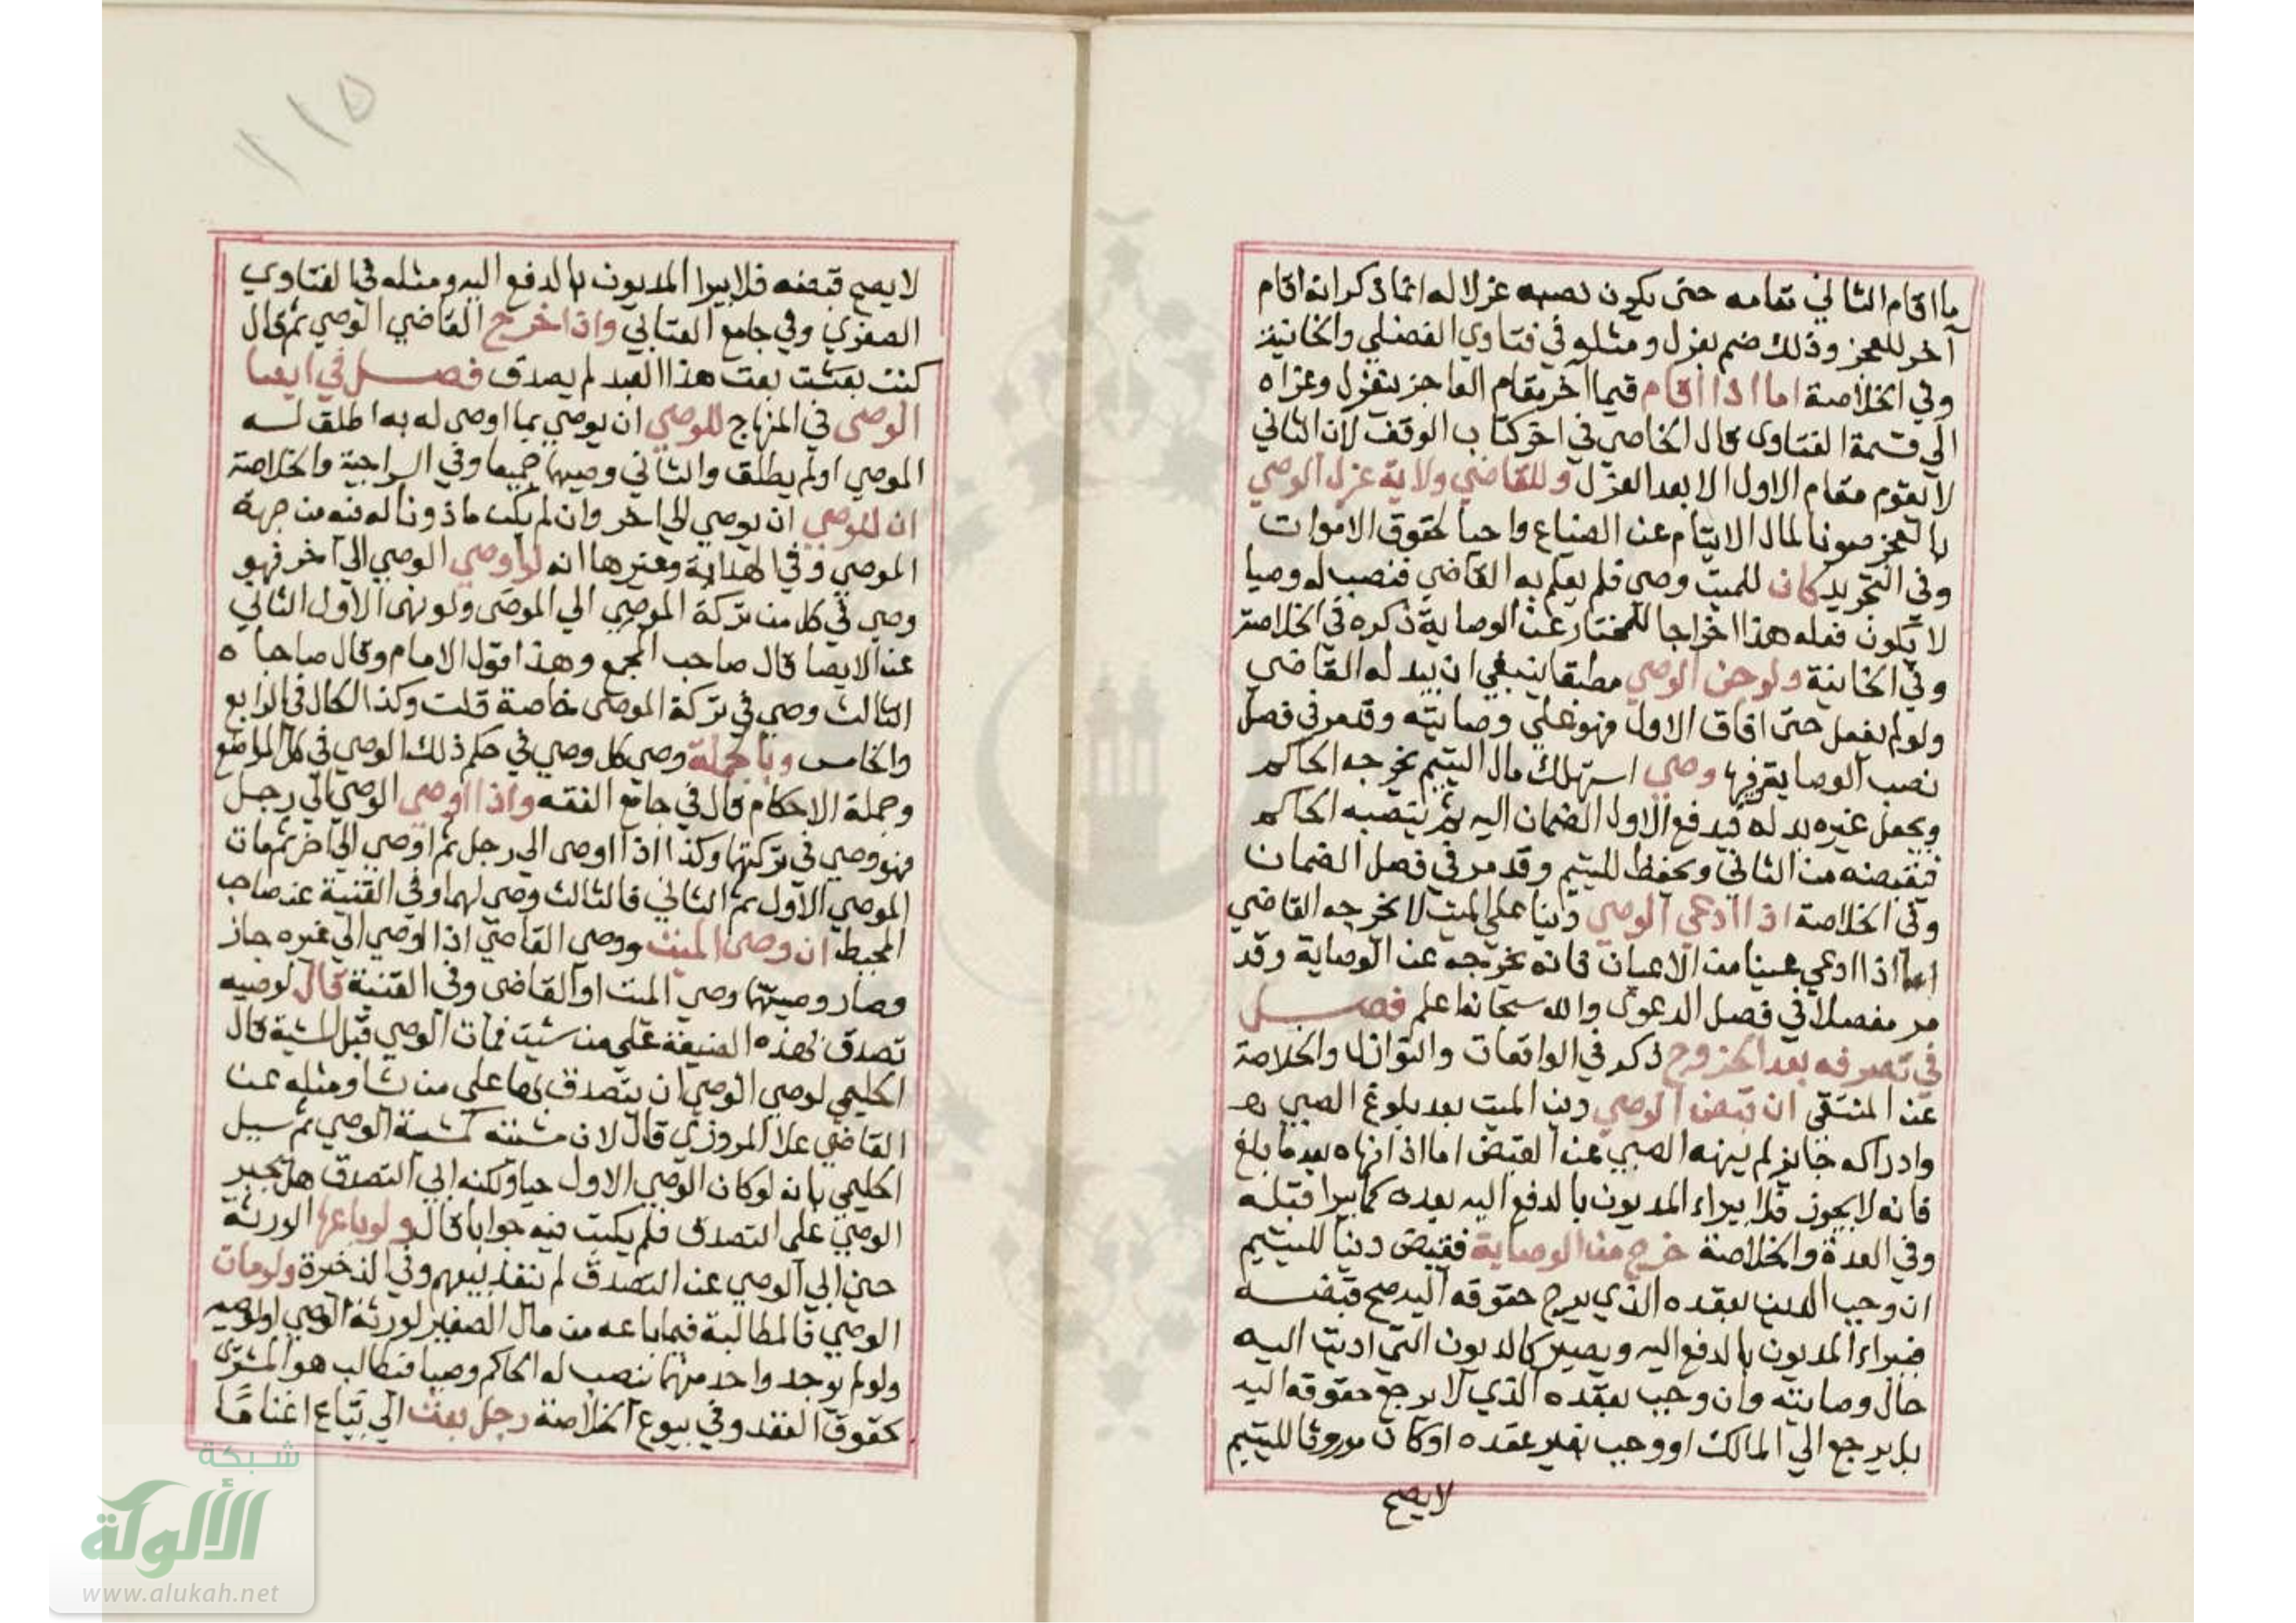 ما اقام الثاني مقامه حتى يكون نصبه عزلا له انما ذكر انه اقام
آخر للعجز وذلك ضم بعزل ومثله في فتاوي الفضلي والخانية
وفي الخلاصة اما اذا اقام قيما آخر مقام العاجز ينعزل وعزاه
الي قسمة الفتاوى قال الخاصي في اخر كتاب الوقف لان الثاني
لا يقوم مقام الاول الا بعد العزل وللقاضي ولاية عزل الوصي
بالعجز صونا لمال الايتام عن الضياع واحيا لحقوق الاموات
وفي التجريد كان للميت وصى فلم يعلم به القاضي فنصب له وصيا
لا يكون فعله هذا اخراجا للمختار عن الوصاية ذكره في الخلاصة
وفي الخانية ولو جن الوصي مطبقا ينبغي ان يبدله القاضي
ولو لم يفعل حتى افاق الاول فهو علي وصايته وقد مر في فصل
نصب الوصاية وصي استهلك مال اليتيم يخرجه الحاكم
ويجعل غيره بدله فيدفع الاول الضمان اليه ثم الحاكم
فيقبضه من الثاني ويحفظ لليتيم وقد مر في فصل الضمان
وفى الخلاصة اذا ادعي الوصي دينا علي الميت لا يخرجه القاضي
اما اذا ادعي عينا من الاعيان فانه يخرجه عن الوصاية وقد
مر مفصلا في فصل الدعوى والله سبحانه اعلم فصل
في تصرفه بعد الخروج ذكر في الواقعات والنوازل والخلاصة
عن المنتقي ان قبض الوصي دين الميت بعد بلوغ الصبي
وادراكه جايز لم ينهه الصبي عن القبض اما اذا نهاه بعد ما بلغ
فانه لا يجوز فلا يبراء المديون بالدفع اليه بعده كما يبرا قبله
وفي العدة والخلاصة خرج من الوصاية فقبض دينا لليتيم
ان وجب الدين بعقده الذي يرجع حقوقه اليه صح قبضه
فيبراء المديون بالدفع اليه ويصير كالديون التي اديت اليه
حال وصايته وان وجب بعقده الذي لا يرجع حقوقه اليه
بل يرجع الي المالك او وجب بغير عقده او كان موروثا لليتيم
لا يصح
١١٥
لا يصح قبضه فلا يبرا المديون بالدفع اليه ومثله في الفتاوي
الصغرى وفي جامع العتابي واذا اخرج القاضي الوصي ثم قال
كنت بعت هذا العبد لم يصدق فصل في ايصا
الوصي في المنهاج للوصي ان يوصي بما اوصى له به اطلق له
الموصي او لم يطلق والثاني وصيهما جميعا وفي السراجية والخلاصة
ان للوصي ان يوصي الي اخر وان لم يكن ماذونا له فيه من جهة
الموصي وفي الهداية وغيرها انه لو اوصي الوصي الي آخر فهو
وصي في كل من تركة الموصي الي الموصى ولو نهى الاول الثاني
عن الايصا قال صاحب المجمع وهذا قول الامام وقال صاحباه
الثالث وصي في تركة الموصى خاصة قلت وكذا الحال في الرابع
والخامس وبالجملة وصي كل وصي في حكم ذلك الوصي في كل المواضع
وجملة الاحكام قال في جامع الفقه واذا اوصى الوصي الي رجل
فهو وصي في تركتهما وكذا اذا اوصى الي رجل ثم اوصي الي اخر ثم مات
الموصي الاول ثم الثاني فالثالث وصي لهما وفي القنية عن صاحب
المحيط ان وصى الميت ووصي القاضي اذا اوصي الي غيره جاز
وصار وصيهما وصي الميت او القاضي وفى القنية قال لوصيه
تصدق بهذه الضيعة علي من شيت فمات الوصي قبل المشية قال
الحليمي لوصي الوصي ان يتصدق بها على من شا ومثله عن
القاضي علا المروزي قال لان مشيته كمشية الوصي ثم سيل
الحليمي بانه لو كان الوصي الاول حيا ولكنه ابي التصدق هل يجبر
الوصي علي التصدق فلم يكتب فيه جوابا قال ولو باعها الورثة
حين ابي الوصي عن التصدق لم ينفذ بيعهم وفي الذخيرة ولو مات
الوصي فالمطالبة فيما باعه من مال الصغير لورثة الوصي او لوصيه
ولو لم يوجد واحد منهما ينصب له الحاكم وصيا فيطالب هو المشترى
كحقوق العقد وفي بيوع الخلاصة رجل بعث الي بياع اغناما
شبكة
الألوكة
www.alukah.net